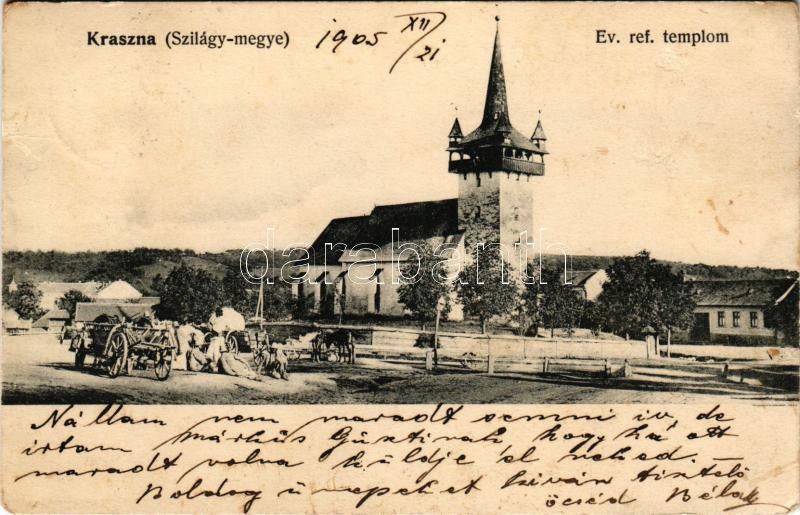 Kraszna (Szilágy-megye) 1905 XII/21 Ev. ref. templom
darabanth
Nállam nem maradt semmi iv, de
irtam Márkus Gusztinak hogy ha ott
maradt volna küldje el neked.
Boldog ünnepeket kiván tisztelő
öcséd Béla